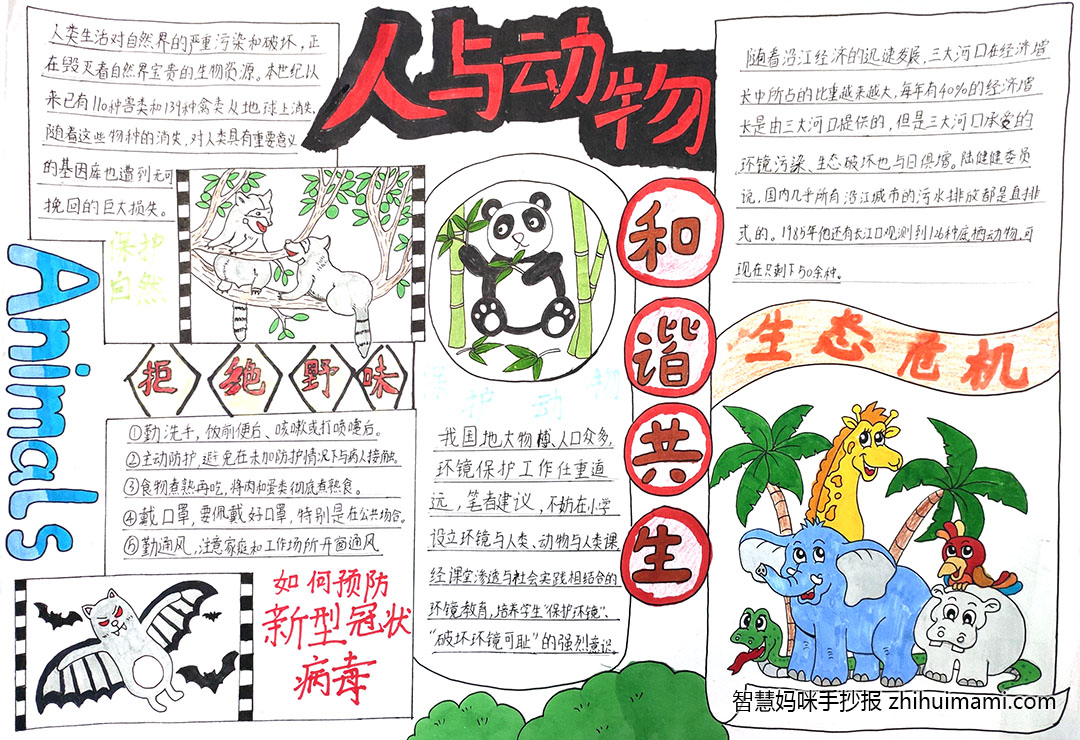 人与动物
人类生活对自然界的严重污染和破坏，正
在毁灭着自然界宝贵的生物资源。本世纪以
来已有110种兽类和139种禽类从地球上消失，
随着这些物种的消失，对人类具有重要意义
的基因库也遭到无可
挽回的巨大损失。
保护
自然
Animals
拒绝野味
①勤洗手，饭前便后、咳嗽或打喷嚏后。
②主动防护，避免在未加防护情况下与病人接触。
③食物煮熟再吃，将肉和蛋类彻底煮熟食。
④戴口罩，要佩戴好口罩，特别是在公共场合。
⑤勤通风，注意家庭和工作场所开窗通风
如何预防
新型冠状
病毒
保护动物
我国地大物博，人口众多，
环镜保护工作任重道
远，笔者建议，不妨在小学
设立环镜与人类、动物与人类课
经课堂渗透与社会实践相结合的
环镜教育，培养学生“保护环镜”、
“破坏环镜可耻”的强烈意识。
和
谐
共
生
随着沿江经济的迅速发展，三大河口在经济增
长中所占的比重越来越大，每年有40%的经济增
长是由三大河口提供的，但是三大河口承受的
环镜污染、生态破坏也与日俱增。陆健健委员
说，国内几乎所有沿江城市的污水排放都是直排
式的。1985年他还有长江口观测到126种底栖动物，可
现在只剩下50余种。
生态危机
智慧妈咪手抄报 zhihuimami.com